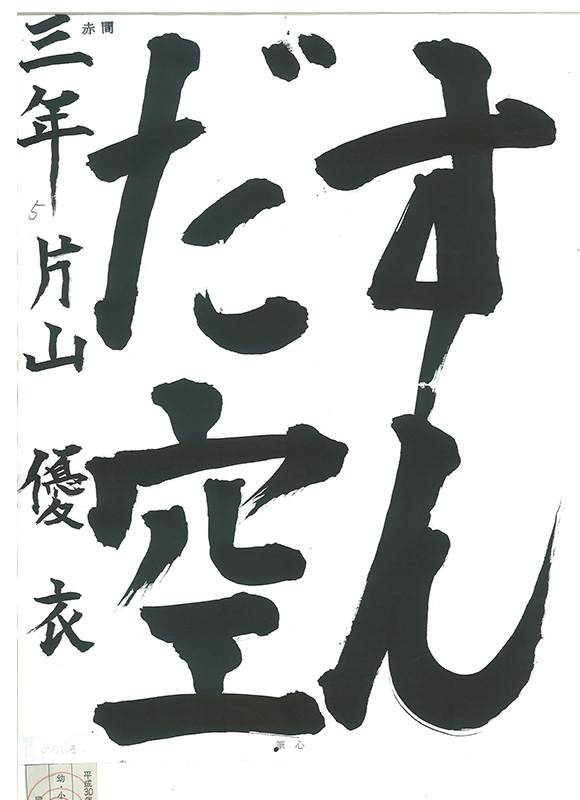 すん
だ空
三年 片山 優衣
5
赤間
筆心
のりしろ
平成30年
幼・小